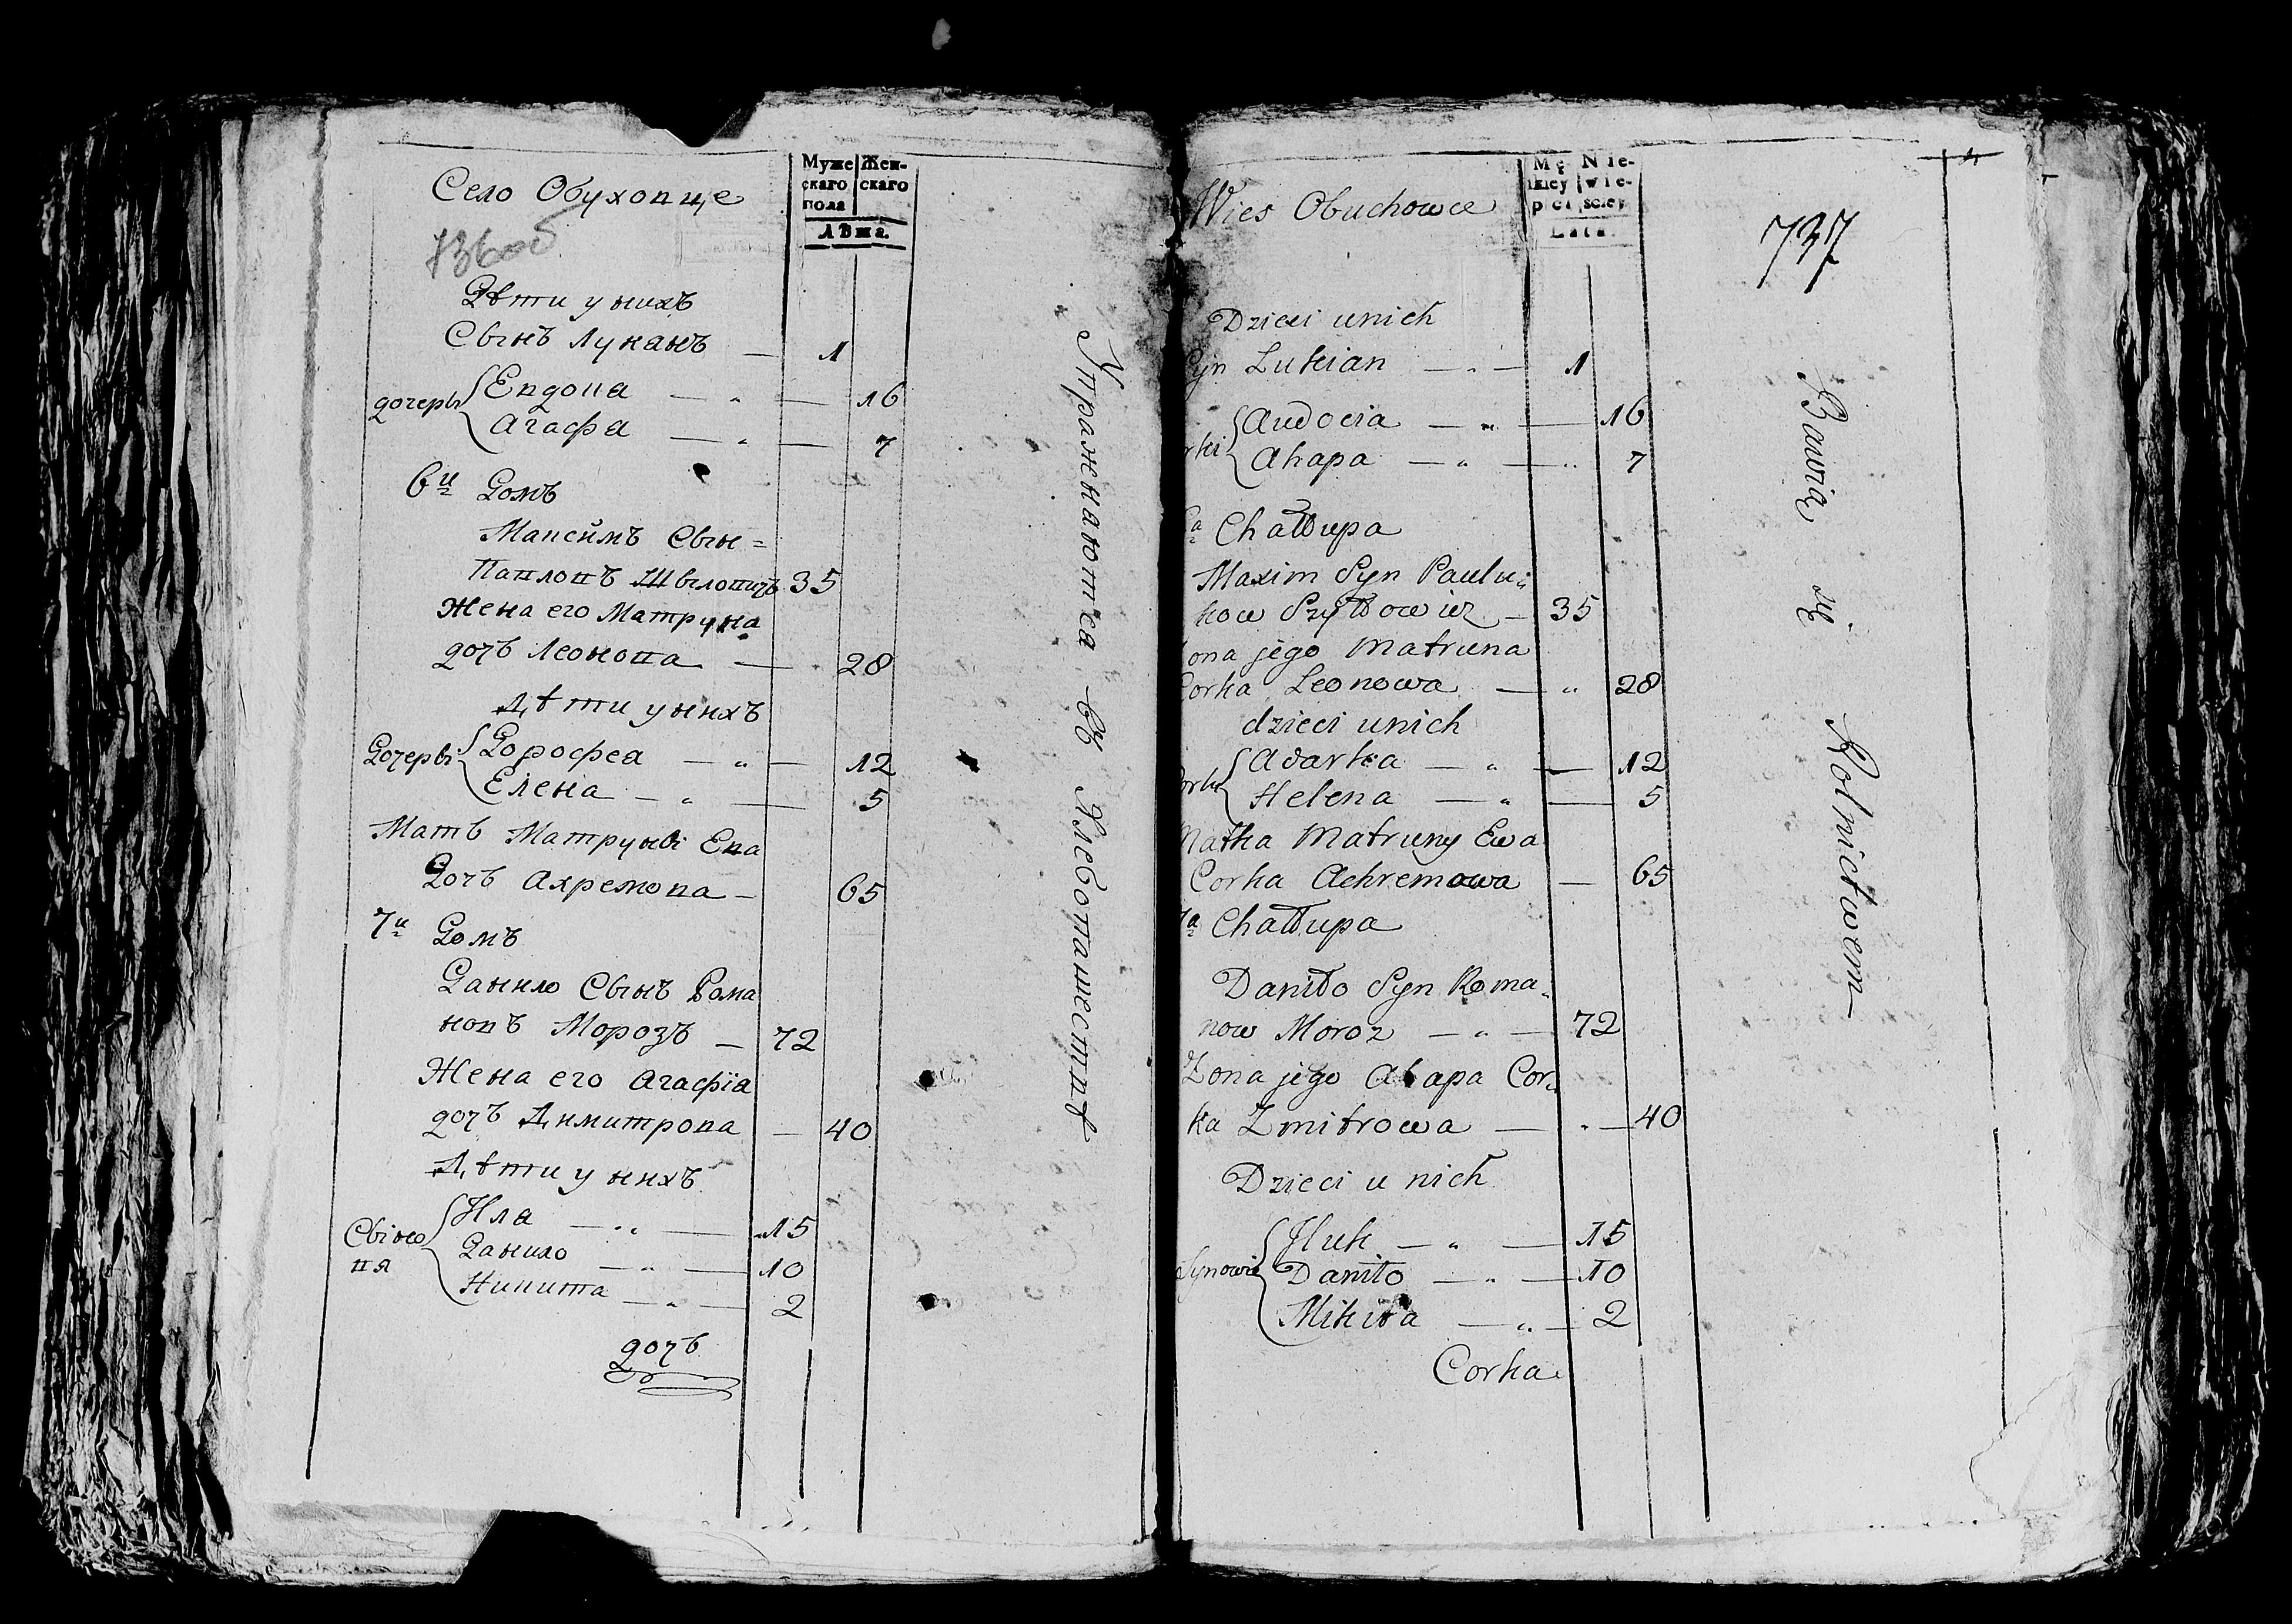 Село Обуховце
736об
Муже
скаго
пола
Жен-
скаго
Лѣта.
Дѣти у нихъ
Сынъ Луканъ — 1
дочеры Евдова — „ — 16
Агафа — „ — 7
6й Домъ
Максимъ Сын=
Павловъ Шыловичъ 35
Жена его Матруна
дочь Леонова — 28
Дѣти у нихъ
Дочеры Дорофеа — „ — 12
Елена — „ — 5
Мать Матруны Ева
Дочь Ахремова — 65
7й Домъ
Данило Сынъ Рома
новъ Морозъ — 72
Жена его Агафіа
дочь Димитрова — 40
Дѣти у нихъ
Сыно
вя
Ила — „ — 15
Данило — „ — 10
Никита — „ — 2
дочь
Упражнаютса въ Хлебопашествѣ
Wies Obuchowce
Mę
skiey
płci
Nie-
wie-
sciey
Lata.
737
Dzieci unich
Syn Lukian — „ — 1
rki Audocia — „ — 16
Ahapa — „ — „ 7
6a Chałłupa
Maxim Syn Paulu„
kow Szyłłowicz — 35
ona jego Matruna
Corka Leonowa — „ 28
dzieci unich
orki Adarka — „ — 12
Helena — „ — 5
Matka Matruny Ewa
Corka Achremowa — 65
7a Chałłupa
Daniło Syn Roma„
now Moroz — „ — 72
Zona jego Ahapa Cor„
ka Zmitrowa — „ — 40
Dzieci u nich
Synowie Iluk — „ — 15
Daniło — „ — 10
Mikita — „ — 2
Corka
Bawią się Rolnictwem